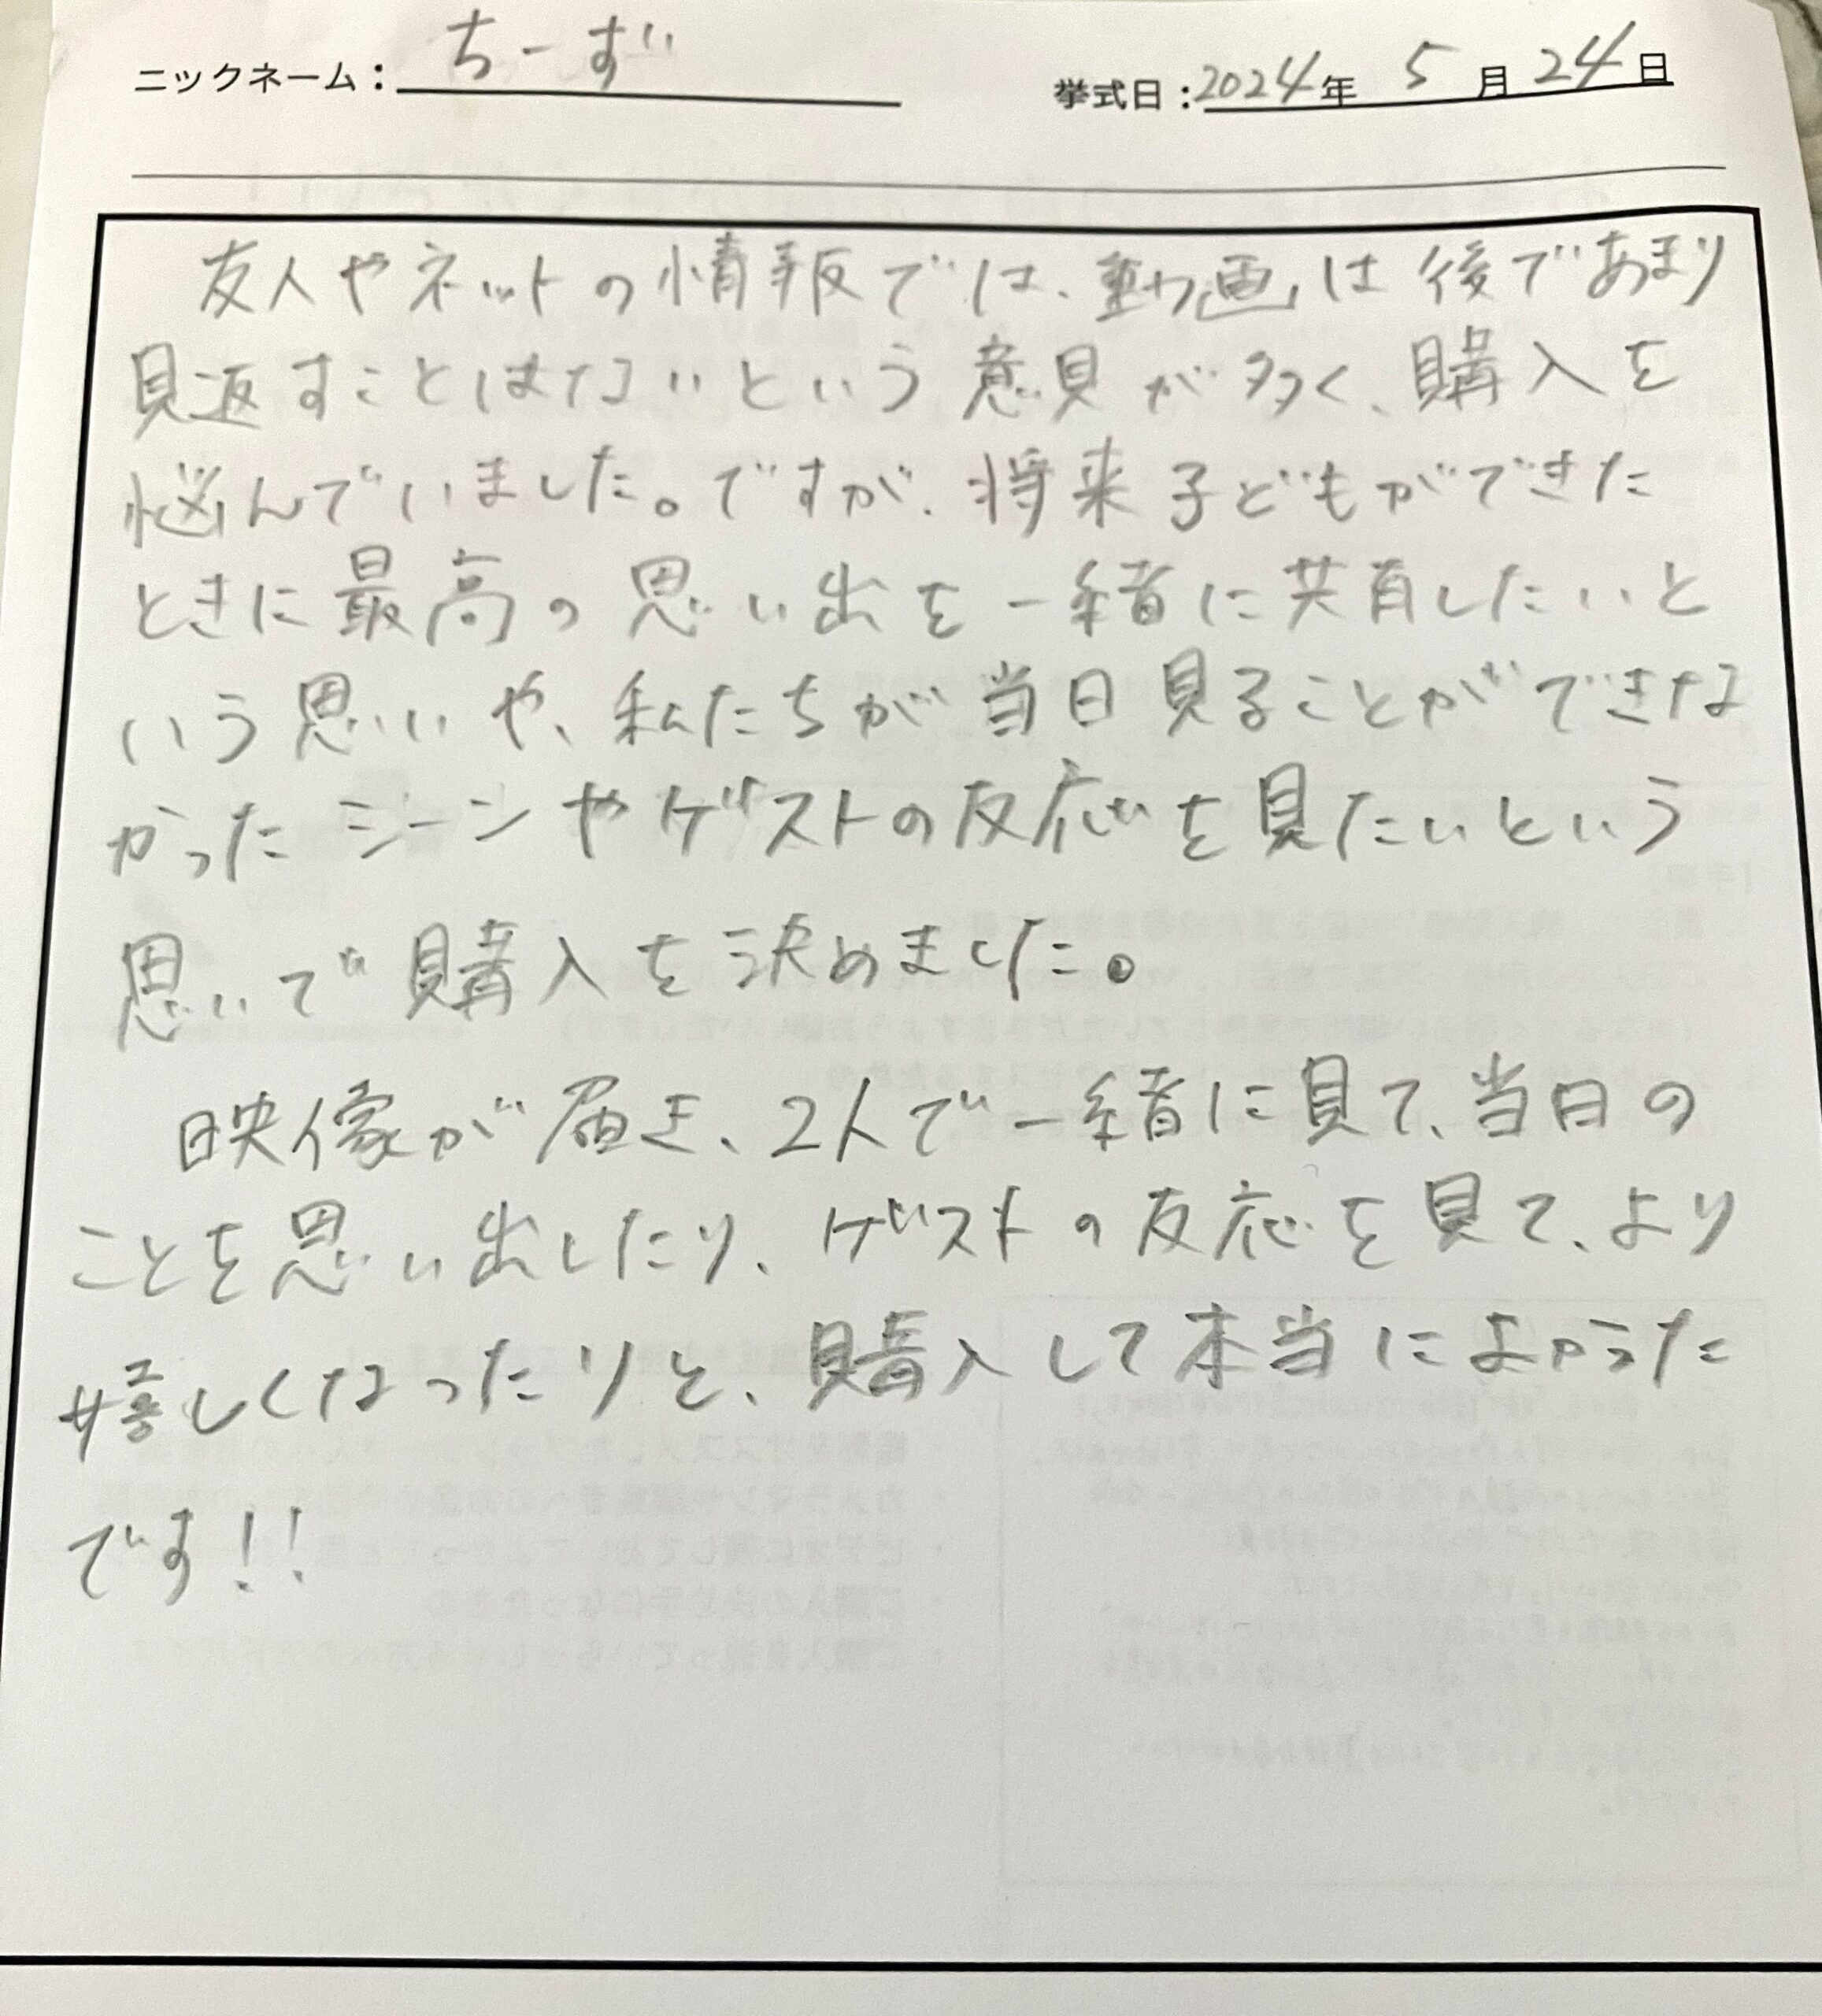 ニックネーム：ちーず
挙式日：2024年 5月24日
友人やネットの情報では、動画は後であまり
見返すことはないという意見が多く、購入を
悩んでいました。ですが、将来子どもができた
ときに最高の思い出を一緒に共有したいと
いう思いや、私たちが当日見ることができな
かったシーンやゲストの反応を見たいという
思いで購入を決めました。
映像が届き、2人で一緒に見て、当日の
ことを思い出したり、ゲストの反応を見て、より
嬉しくなったりと、購入して本当によかった
です！！